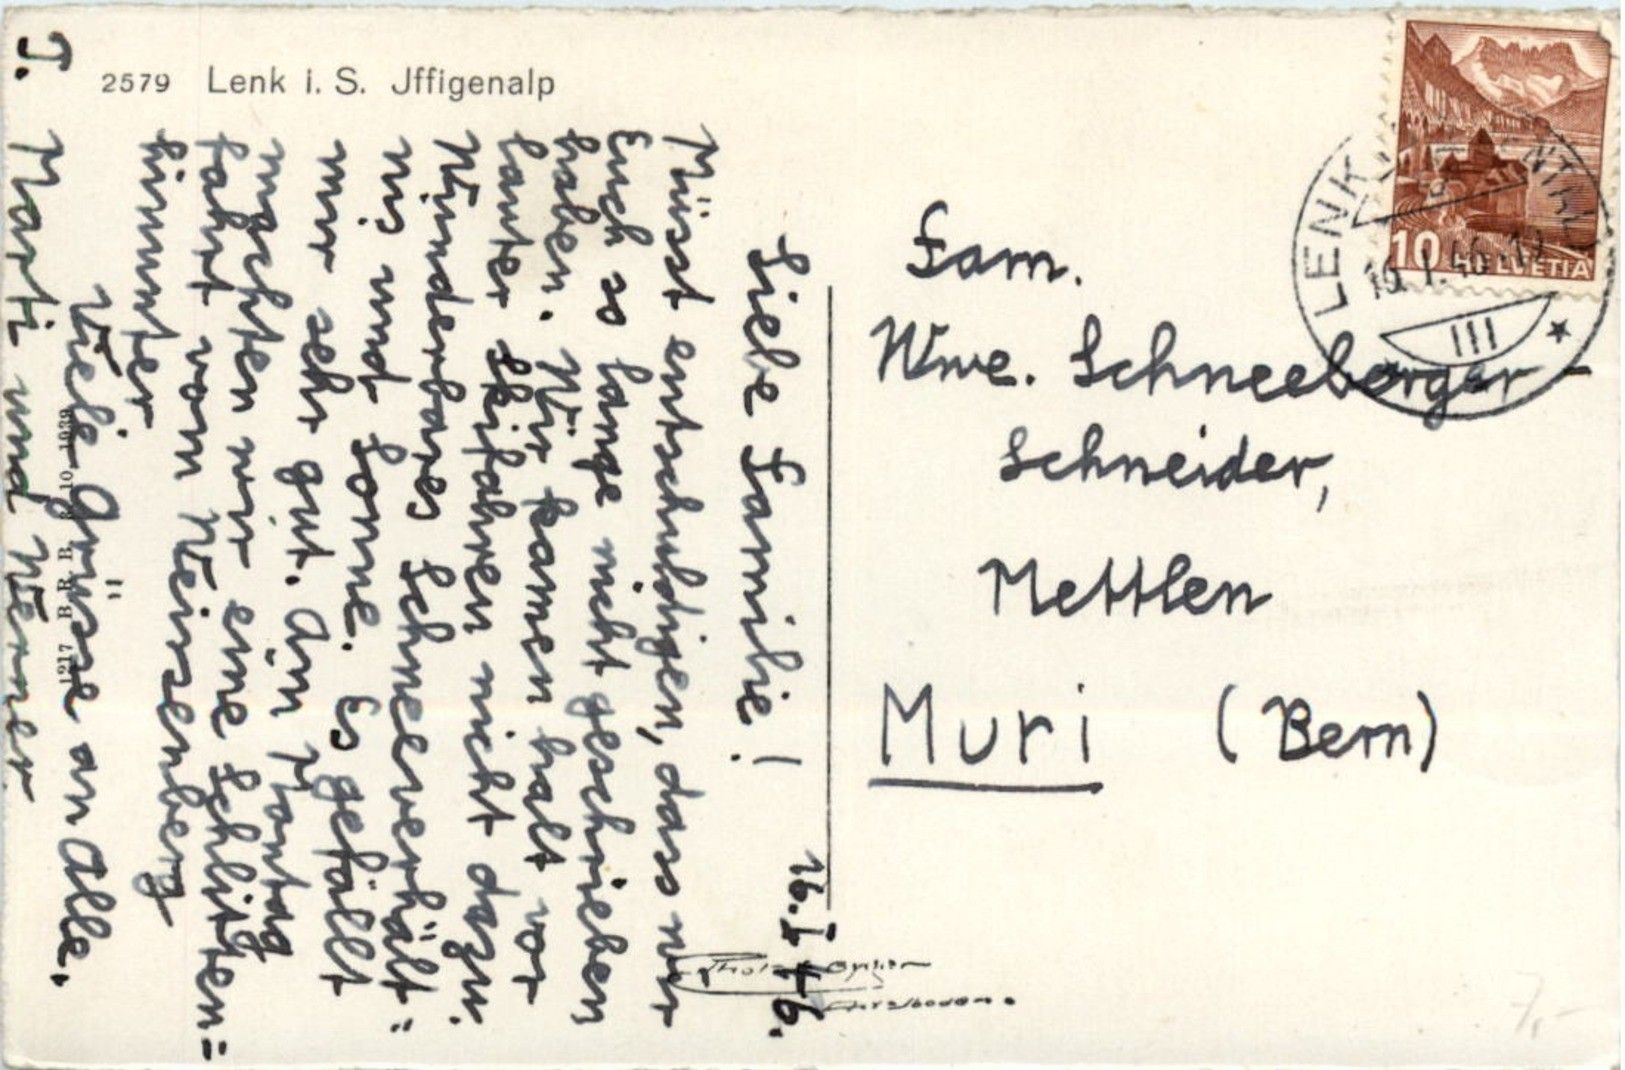 2579 Lenk i. S. Jffigenalp
16. I. 46.
Liebe Familie!
Müsst entschuldigen, dass wir
Euch so lange nicht geschrieben
haben. Wir kamen halt vor
lauter Skifahren nicht dazu.
Wunderbares Schneeverhält-
nis und Sonne. Es gefällt
mir sehr gut. Am Montag
machten wir eine Schlitten=
fahrt vom Weissenberg
hinunter
Viele Grüsse an Alle.
J. Marti und Werner
1217 B R B 3. 10. 1939
HELVETIA
10
LENK
16. I. 46-12
III
Fam.
Wwe. Schneeberger-
Schneider,
Mettlen
Muri (Bern)
7,-